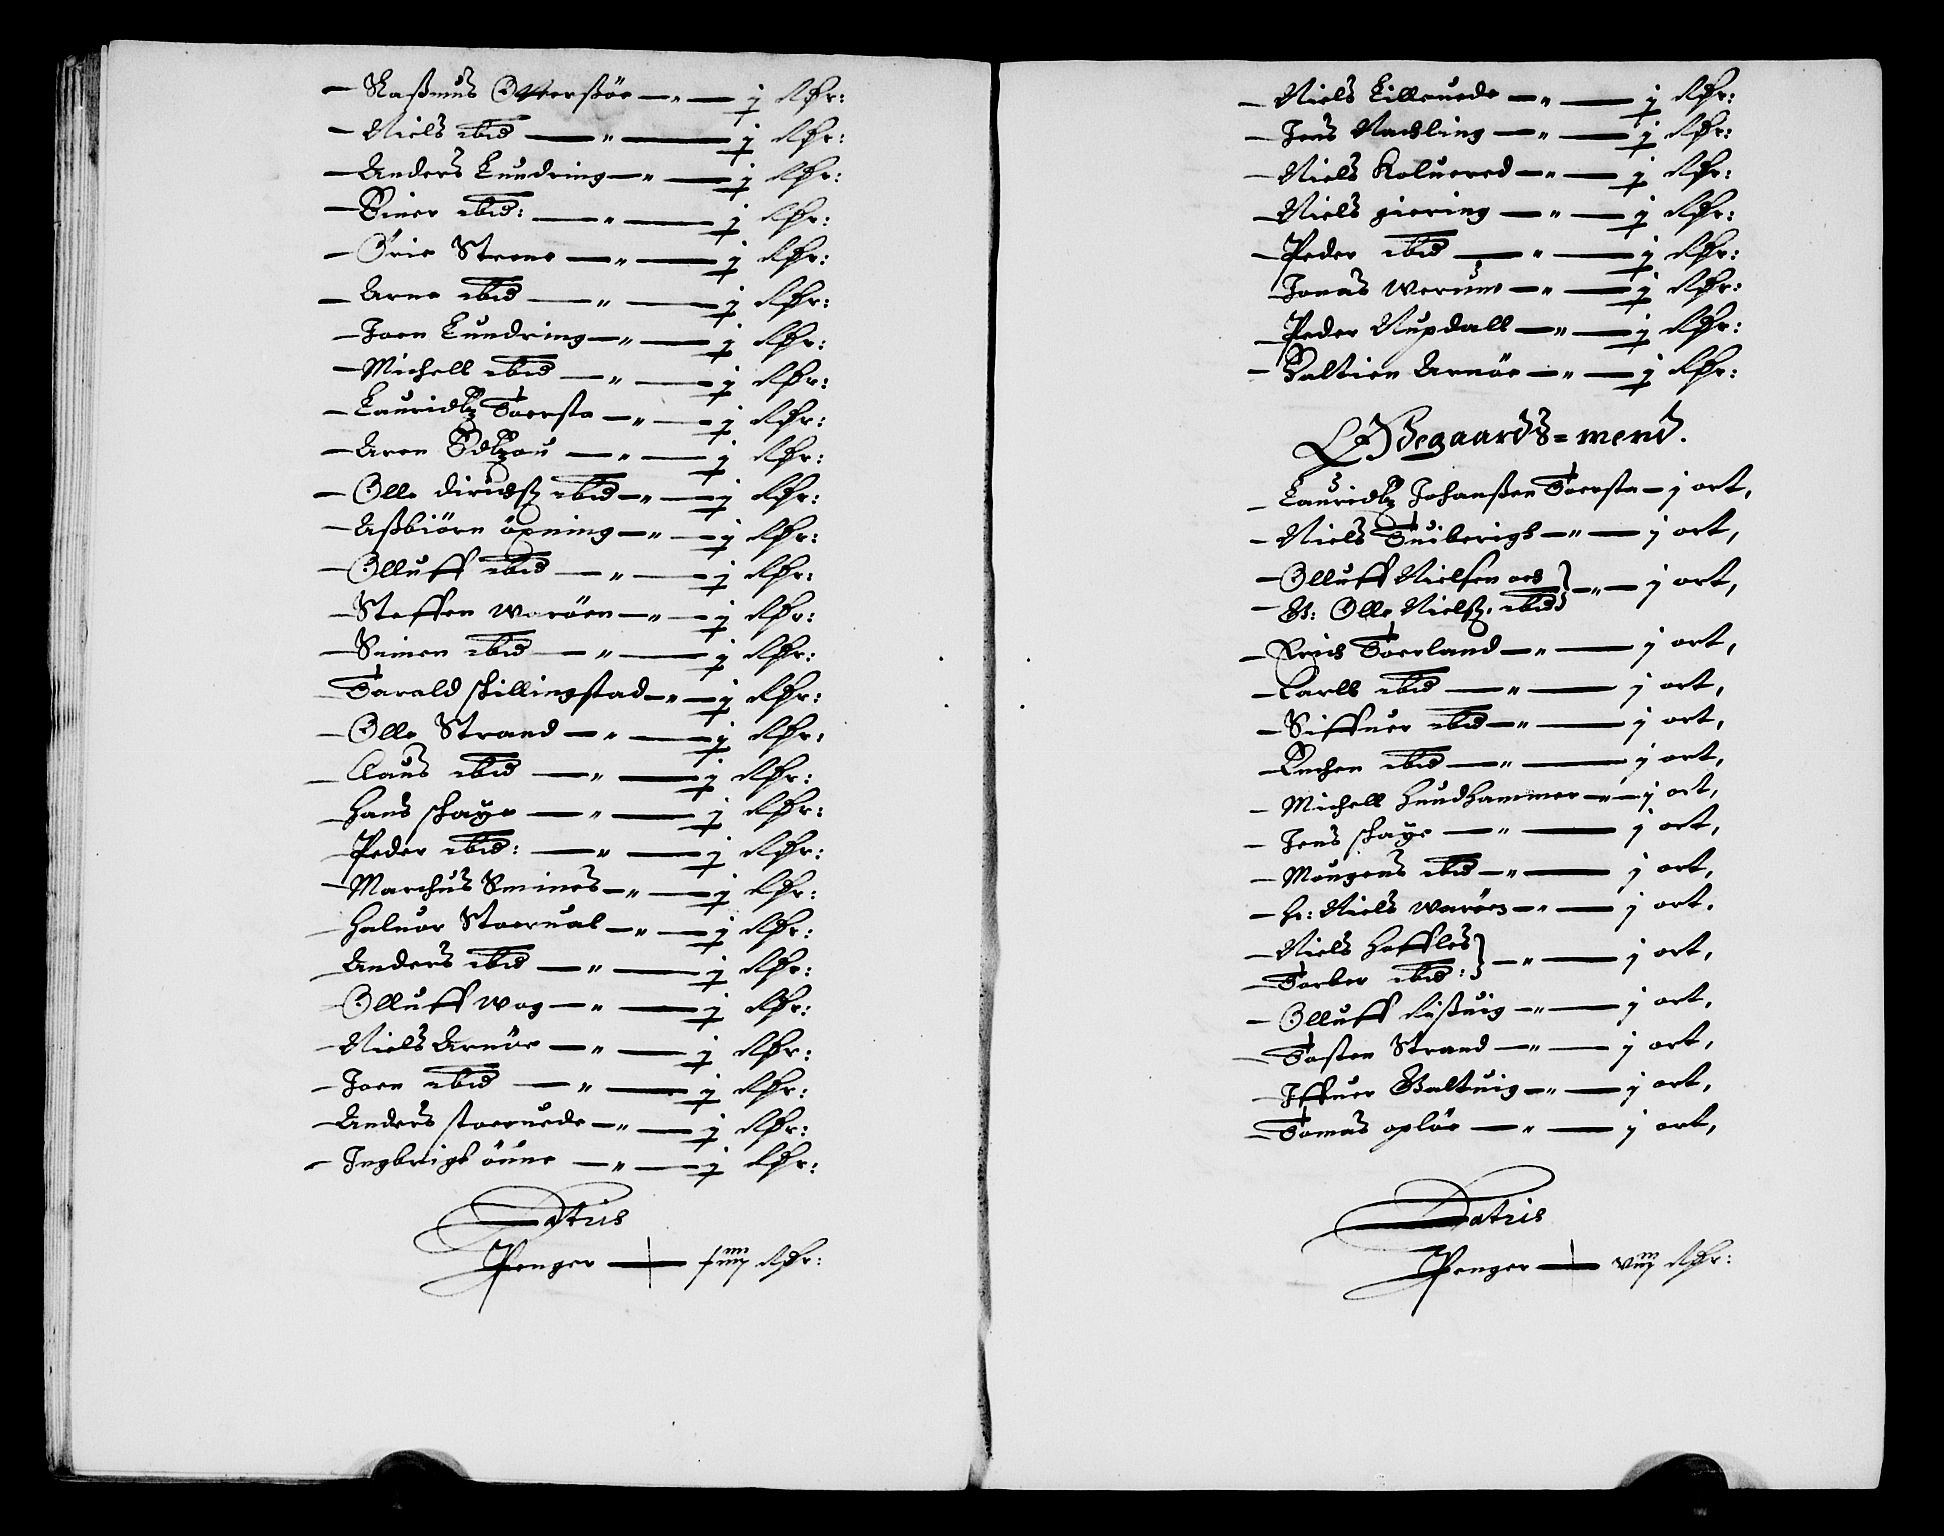 Raßmus Offuersøe — " — j Rdr:
Niels ibid — " — j Rdr:
Anders Lundring — " — j Rdr:
Siner ibid: — " — j Rdr:
Eric Streme — " — j Rdr:
Arne ibid — " — j Rdr:
Joen Lundring — " — j Rdr:
Michell ibid — " — j Rdr:
Lauridtz Toersta — " — j Rdr:
Aren — " — j Rdr:
Olle ibid — " — j Rdr:
Aßbiörn öxning — " — j Rdr:
Olluff ibid — " — j Rdr:
Steffen Waröen — " — j Rdr:
Simen ibid — " — j Rdr:
Tarald skillingstad — " — j Rdr:
Olle Strand — " — j Rdr:
Claus ibid — " — j Rdr:
Hans skaye — " — j Rdr:
Peder ibid: — " — j Rdr:
Marchus Smines — " — j Rdr:
Haluor Stoerual — " — j Rdr:
Anders ibid — " — j Rdr:
Olluff Wog — " — j Rdr:
Niels Arnöe — " — j Rdr:
Joen ibid — " — j Rdr:
Anders stoeruede — " — j Rdr:
Ingbrigt öune — " — j Rdr:
Latus
Penger — Rdr:
Niels Lilleuede — " — j Rdr:
Jens Narling — " — j Rdr:
Niels Koluered — " — j Rdr:
Niels giering — " — j Rdr:
Peder ibid — " — j Rdr:
Jonas Werum — " — j Rdr:
Peder Nupdall — " — j Rdr:
Baltien Arnöe — " — j Rdr:
Ødegaards=mend.
Lauridtz Johanßen Toersta — j ort,
Niels Tuiberigh — " — j ort,
Olluff Nielsen oc
Olle Nielß: ibid — " — j ort,
Erich Toerland — " — j ort,
Carll ibid — " — j ort,
Siffuer ibid — " — j ort,
Enchen ibid — " — j ort,
Michell Hundhammer — " — j ort,
Jens skaye — " — j ort,
Mougens ibid — " — j ort,
Hr: Niels Waröen — " — j ort,
Niels Hoffles
Torber ibid: — " — j ort,
Olluff Rißuig — " — j ort,
Tosten Strand — " — j ort,
Iffuer Baltuig — " — j ort,
Tomas oplöe — " — j ort,
Latus
Penger — Rdr: